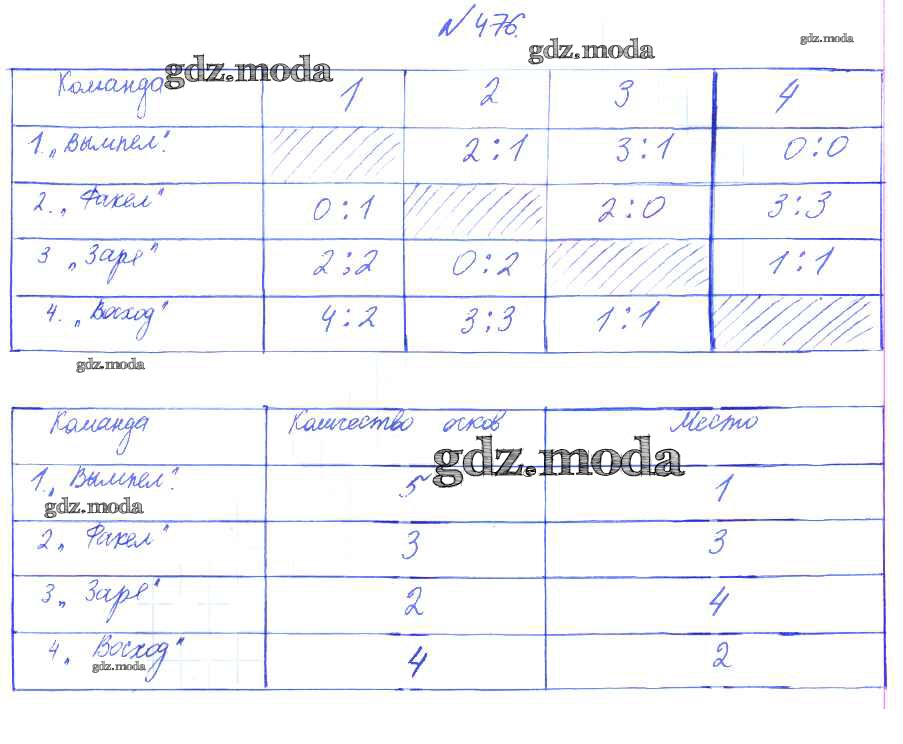 № 476.
gdz.moda
gdz.moda
gdz.moda
Команда 1 2 3 4
1. „Вымпел". 2:1 3:1 0:0
2. „Факел" 0:1 2:0 3:3
3 „Заре" 2:2 0:2 1:1
4. „Восход" 4:2 3:3 1:1
gdz.moda
Команда Количество очков Место
gdz.moda
1. „Вымпел". 5 1
gdz.moda
2 „Факел" 3 3
3 „Заре" 2 4
4 „Восход" 4 2
gdz.moda